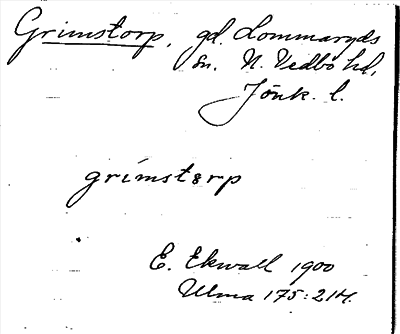 Grimstorp, gd. Lommaryds
sn. N. Vedbo hd,
Jönk. l.
grimstɵrp
E. Ekwall 1900
Ulma 175:214.